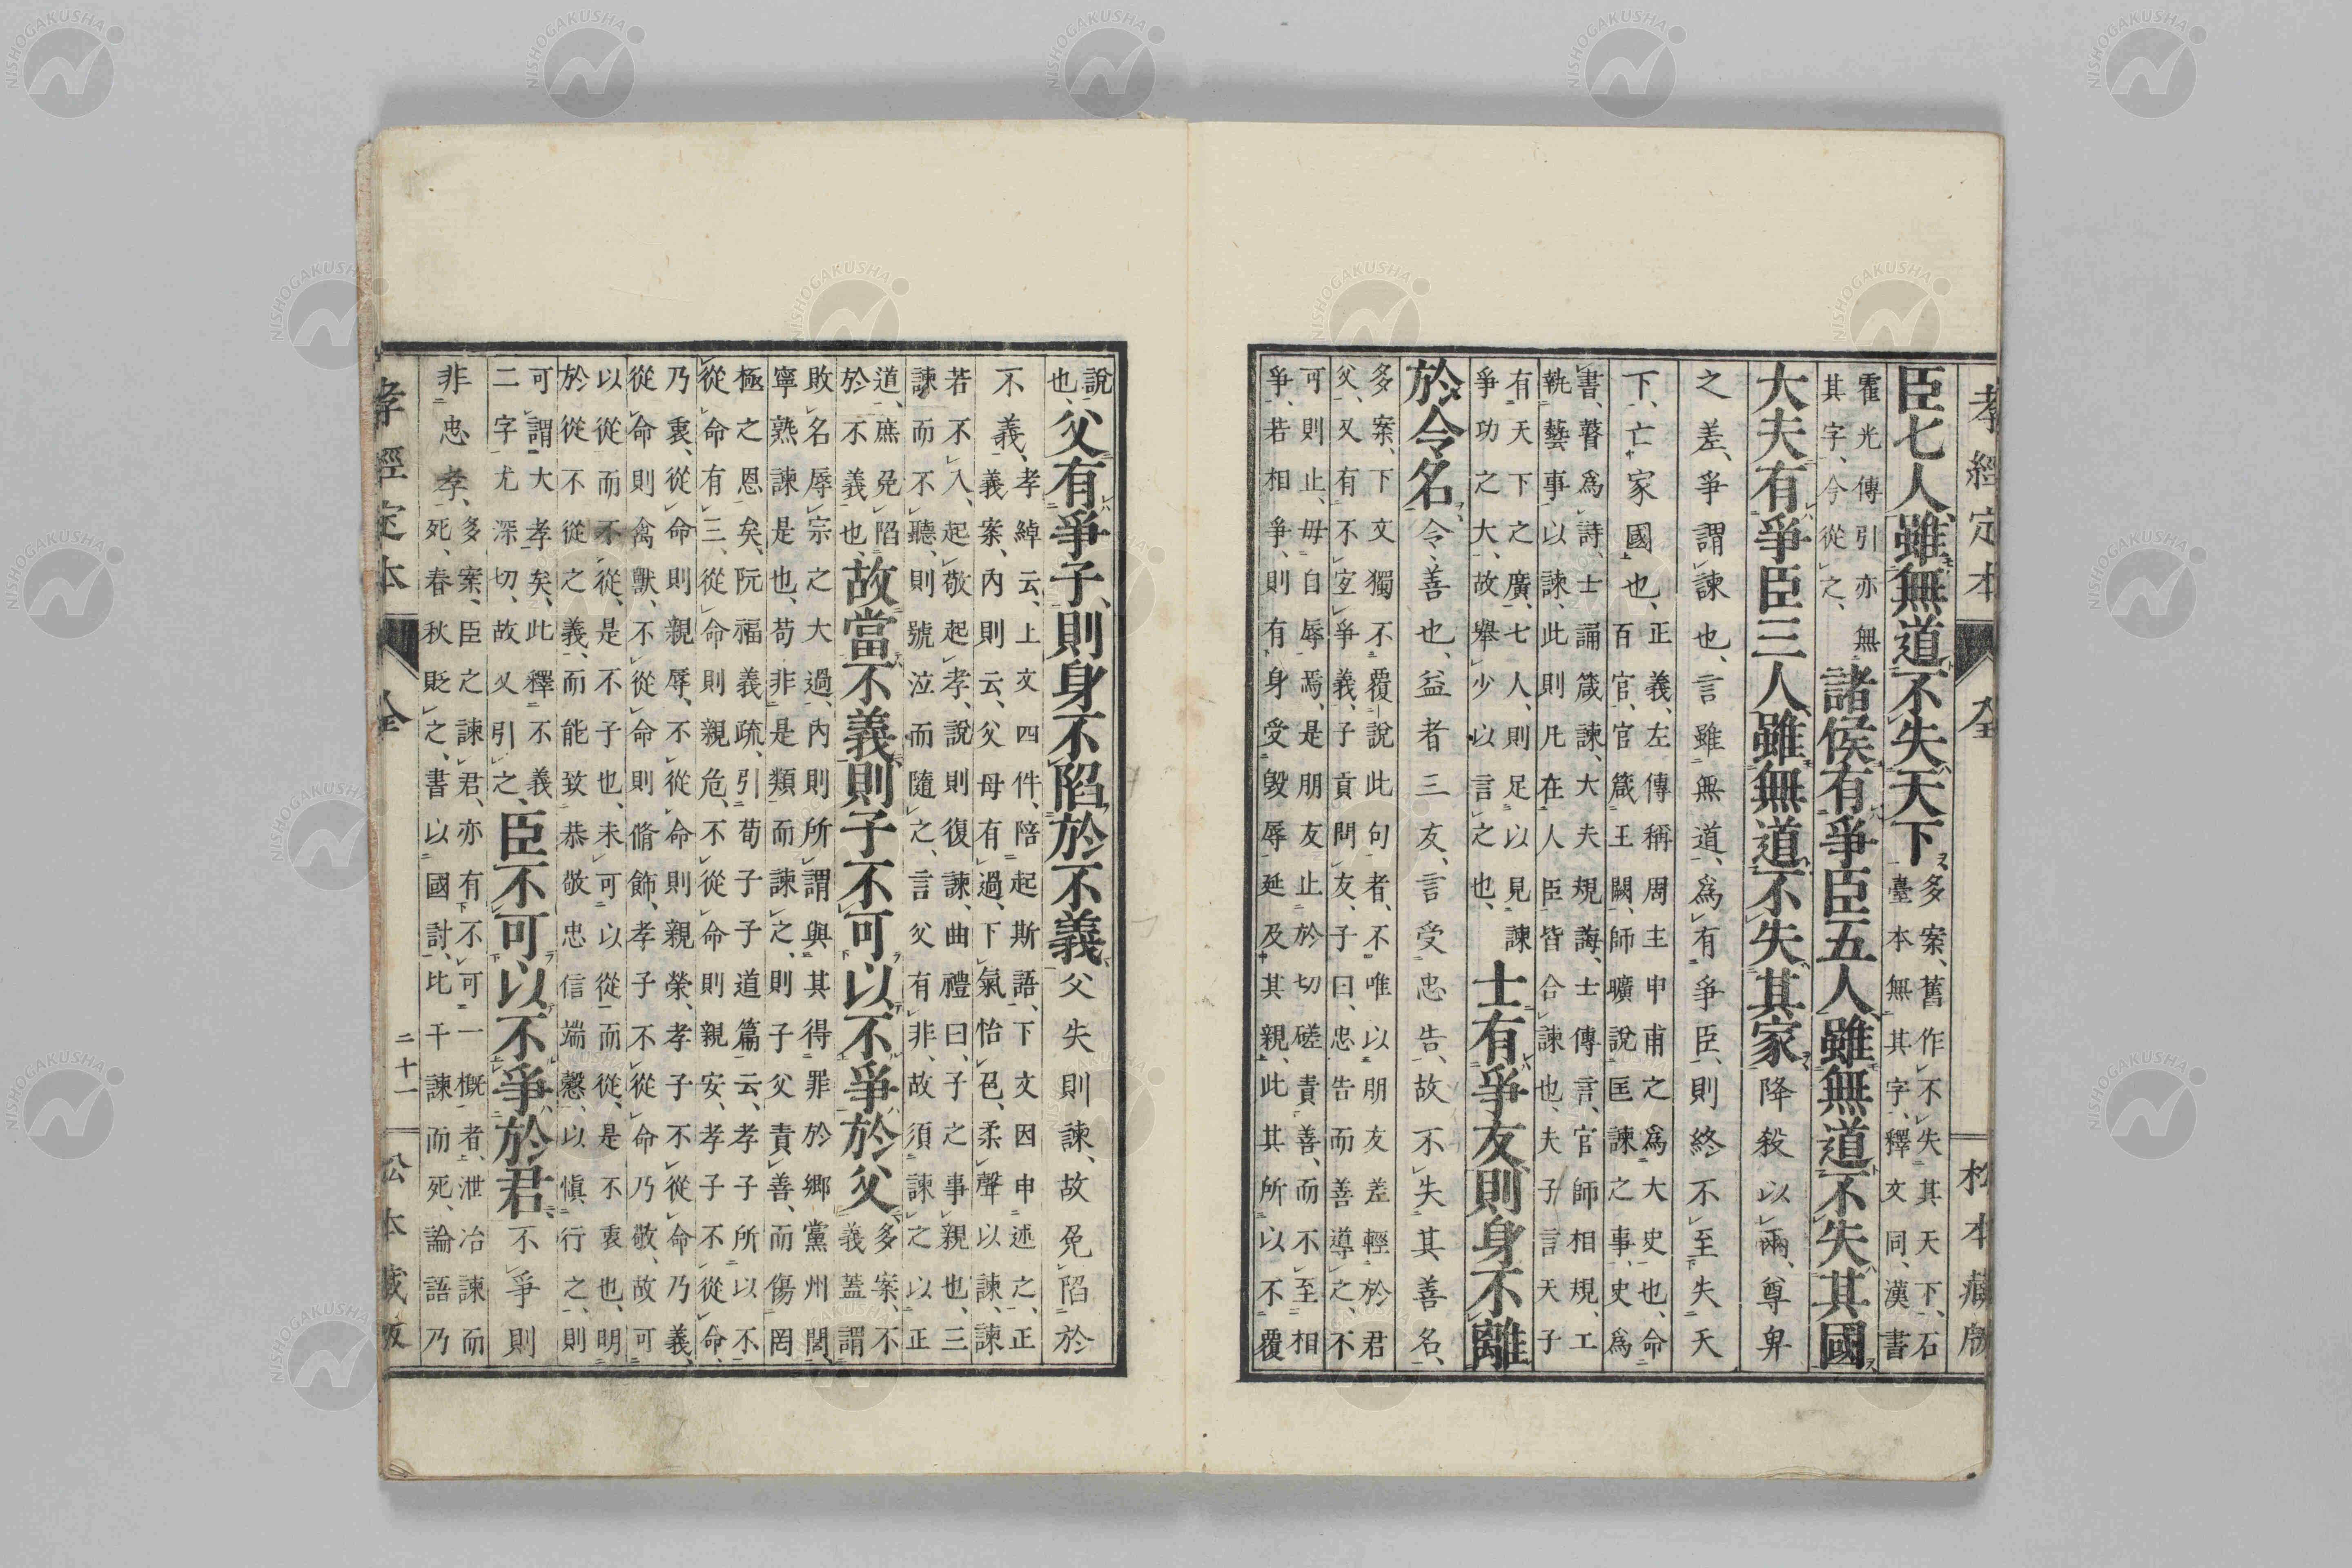 孝經定本 全 松本藏版
臣七人雖無道不失天下
多案、舊作不失其天下、石
臺本無其字、釋文同、漢書
霍光傳引亦無
其字、今從之、
諸侯有爭臣五人雖無道不失其國
大夫有爭臣三人雖無道不失其家 降殺以兩、尊卑
之差、爭謂諫也、言雖無道、爲有爭臣、則終不至失天
下、亡家國也、
正義、左傳稱周主申甫之爲大史也、命
百官、官箴王闕、師曠說匡諫之事、史爲
書、瞽爲詩、士誦箴諫、大夫規誨、士傳言、官師相規、工
執藝事以諫、此則凡在人臣皆合諫也、夫子言天子
有天下之廣、七人、則足以見諫
爭功之大、故舉少以言之也、
士有爭友則身不離
於令名 令善也、益者三友、言受忠告、故不失其善名、
多案、下文獨不覆說此句者、不唯以朋友差輕於君
父、又有不宜爭義、子貢問友、子曰、忠告而善導之、不
可則止、毋自辱焉、是朋友止於切磋責善、而不至相
爭、若相爭、則有身受毀辱延及其親、此其所以不覆
說
也、
父有爭子、則身不陷於不義 父失則諫、故免陷於
不義、
孝綽云、上文四件、陪起斯語、下文因申述之、正
義案、內則云、父母有過、下氣怡色、柔聲以諫、諫
若不入、起敬起孝、說則復諫、曲禮曰、子之事親也、三
諫而不聽、則號泣而隨之、言父有非、故須諫之以正
道、庶免陷
於不義也、
故當不義則子不可以不爭於父
多案、不
義蓋謂
敗名辱宗之大過、內則所謂與其得罪於鄉黨州閭、
寧熟諫是也、苟非是類而諫之、則子父責善、而傷罔
極之恩矣、阮福義疏、引荀子子道篇云、孝子所以不
從命有三、從命則親危、不從命則親安、孝子不從命、
乃衷、從命則親辱、不從命則親榮、孝子不從命乃義、
從命則禽獸、不從命則脩飾、孝子不從命乃敬、故可
以從而不從、是不子也、未可以從而從、是不衷也、明
於從不從之義、而能致恭敬忠信端愨、以愼行之、則
可謂大孝矣、此釋不義
二字尤深切、故又引之、
臣不可以不爭於君 不爭則
非忠孝、
多案、臣之諫君、亦有不可一概者、泄冶諫而
死、春秋貶之、書以國討、比干諫而死、論語乃
孝經定本 全 二十一 松本藏版